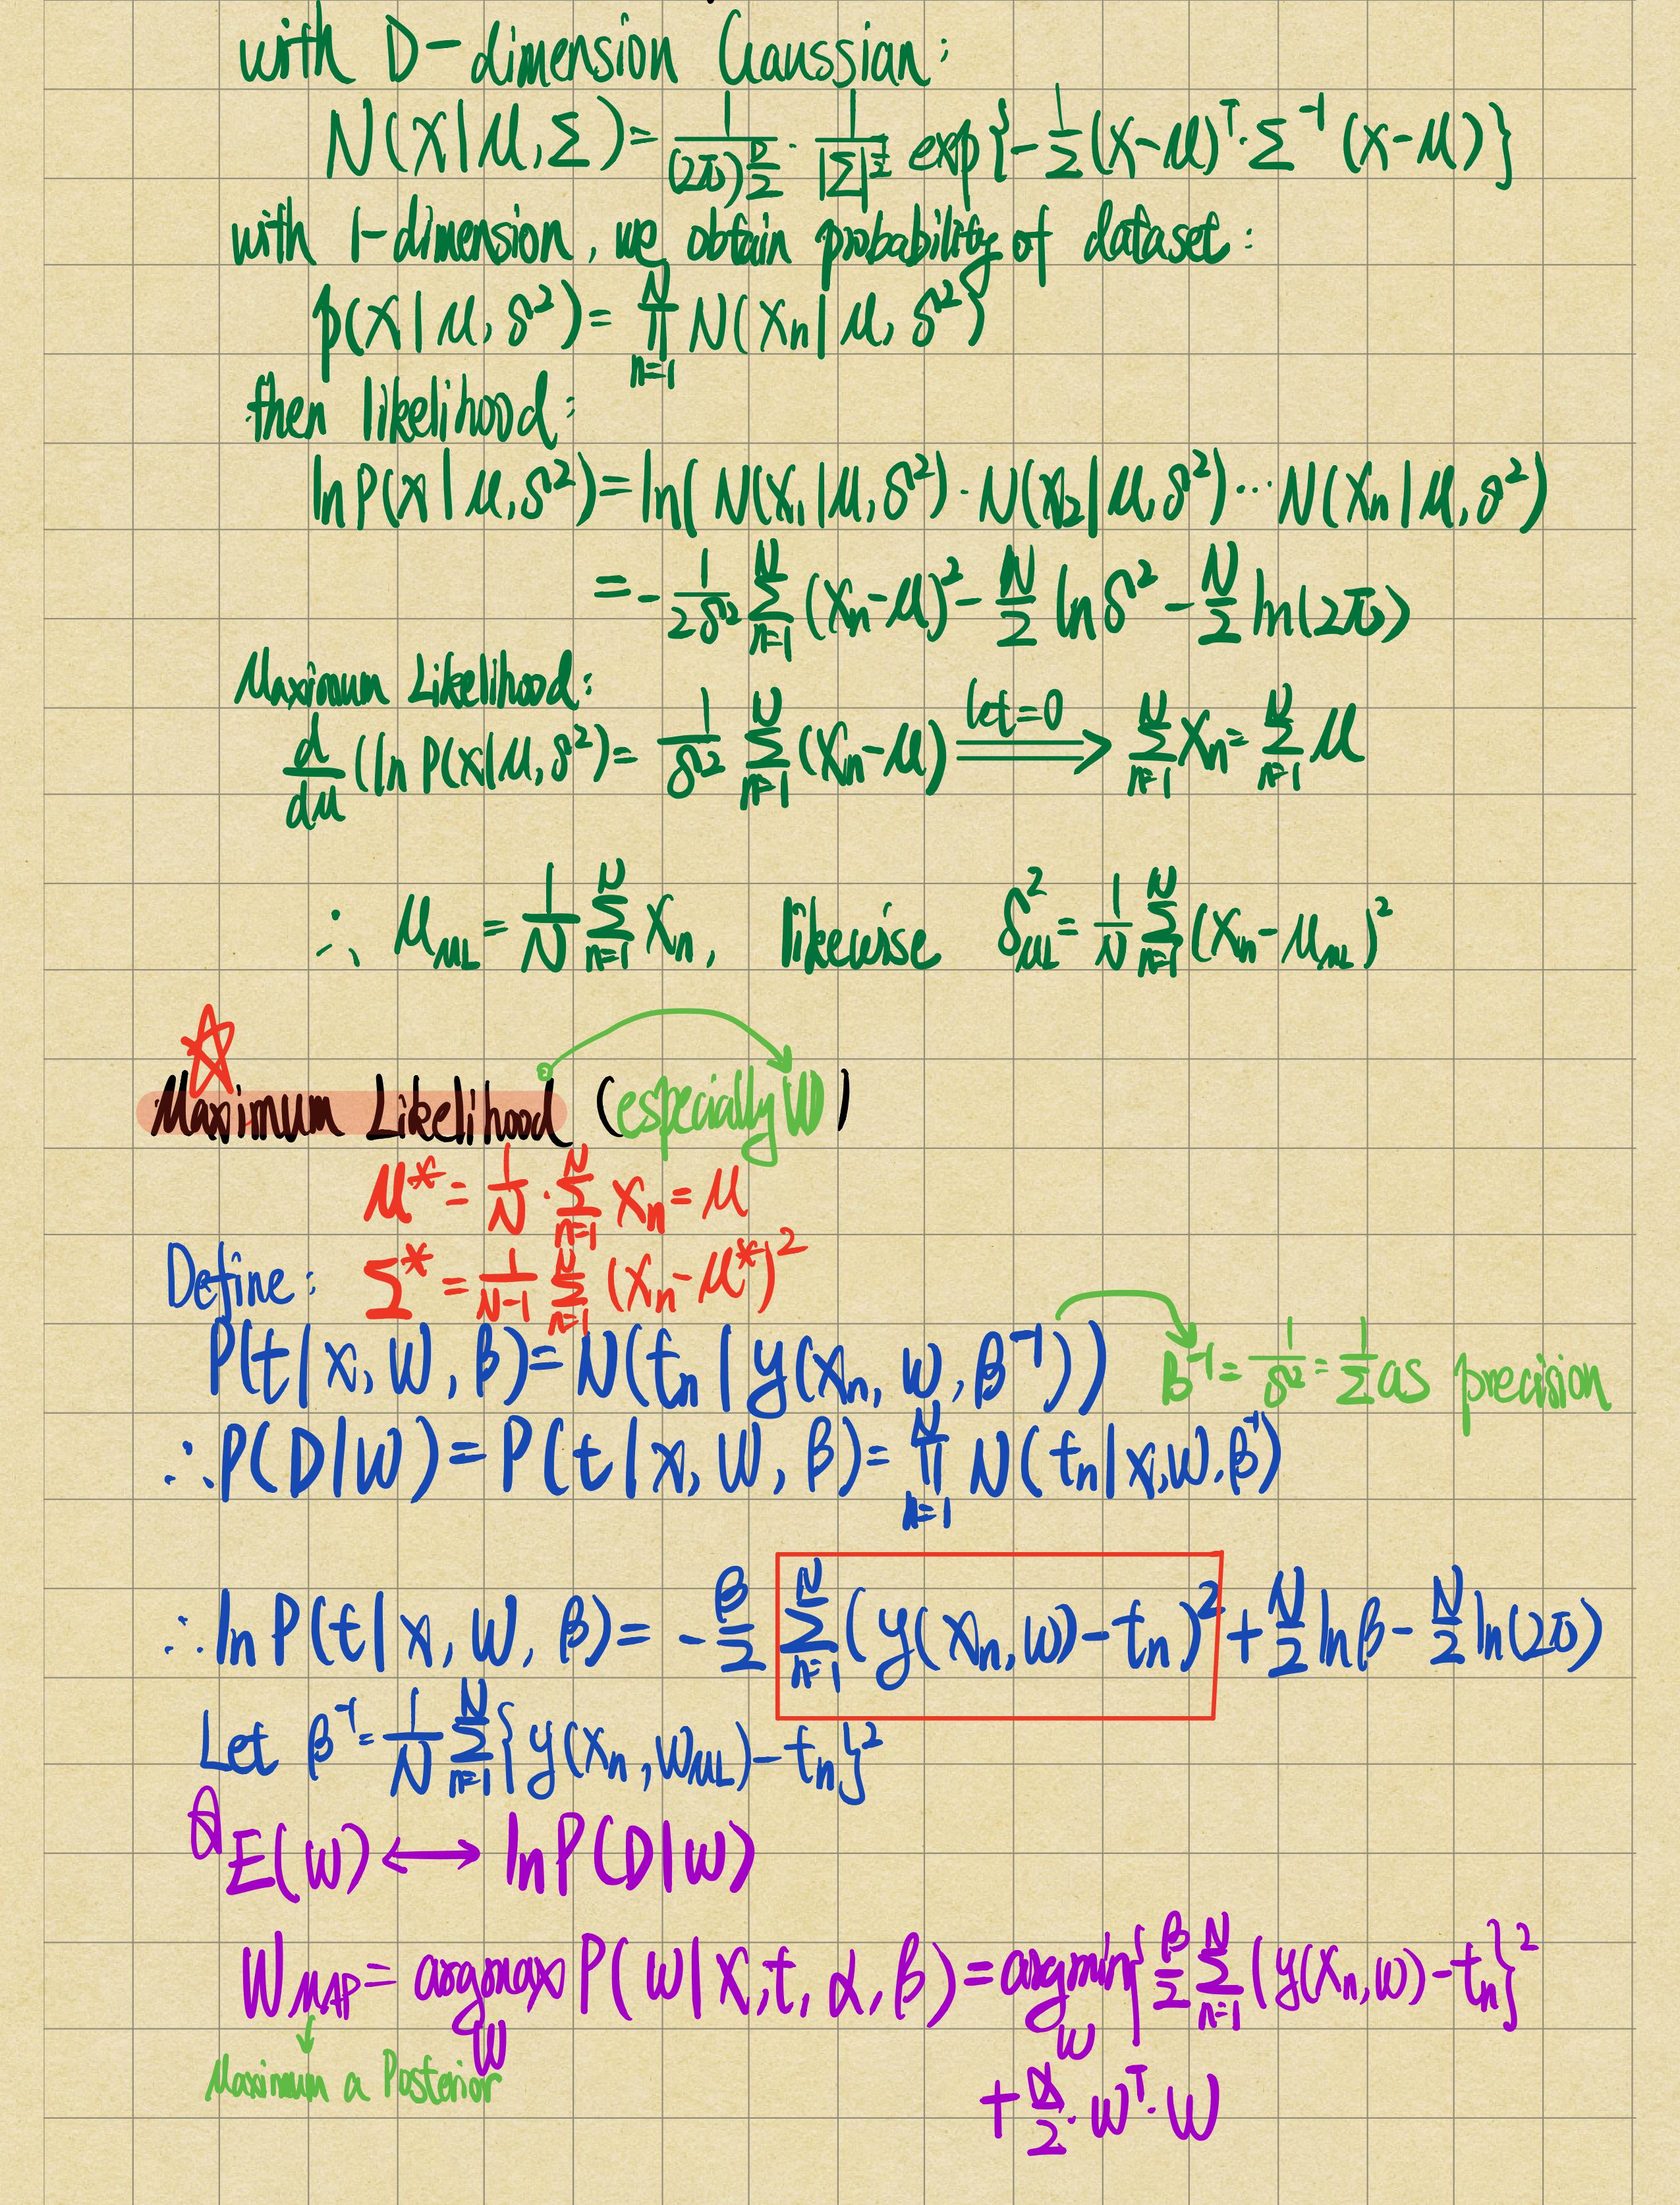 with D-dimension Gaussian:
N(x|μ,Σ)= 1/(2π)^{D/2} · 1/|Σ|^{1/2} exp{-1/2 (x-μ)^T · Σ^{-1} (x-μ)}
with 1-dimension, we obtain probability of dataset:
p(x|μ, δ²)= ∏_{n=1}^{N} N(x_n|μ, δ²)
then likelihood:
ln P(x|μ,δ²)=ln( N(x_1|μ,δ²)·N(x_2|μ,δ²)···N(x_n|μ,δ²)
=- 1/(2δ²) Σ_{n=1}^{N} (x_n-μ)² - N/2 ln δ² - N/2 ln(2π)
Maximum Likelihood:
d/dμ (ln P(x|μ,δ²)= 1/δ² Σ_{n=1}^{N} (x_n-μ) ==let=0==> Σ_{n=1}^{N} x_n = Σ_{n=1}^{N} μ
∴ μ_{ML} = 1/N Σ_{n=1}^{N} x_n, likewise δ²_{ML} = 1/N Σ_{n=1}^{N} (x_n-μ_{ML})²
Maximum Likelihood (especially W)
μ* = 1/N · Σ_{n=1}^{N} x_n = μ
Define: Σ* = 1/(N-1) Σ_{n=1}^{N} (x_n-μ*)²
P(t|x, W, β)=N(t_n|y(x_n, w, β^{-1})) β^{-1} = 1/δ² = 1/Σ as precision
∴P(D|W)=P(t|x, W, β)= ∏_{n=1}^{N} N(t_n|x,W,β^{-1})
∴ln P(t|x, W, β)= - β/2 Σ_{n=1}^{N} (y(x_n, w)-t_n)² + N/2 ln β - N/2 ln(2π)
Let β^{-1} = 1/N Σ_{n=1}^{N} {y(x_n, w_{ML})-t_n}²
E(w) ⟷ ln P(D|W)
W_{MAP} = argmax_W P(w|x,t, α, β) = argmin_W { β/2 Σ_{n=1}^{N} (y(x_n,w)-t_n}²
Maximum a Posterior
+ α/2 · w^T · W